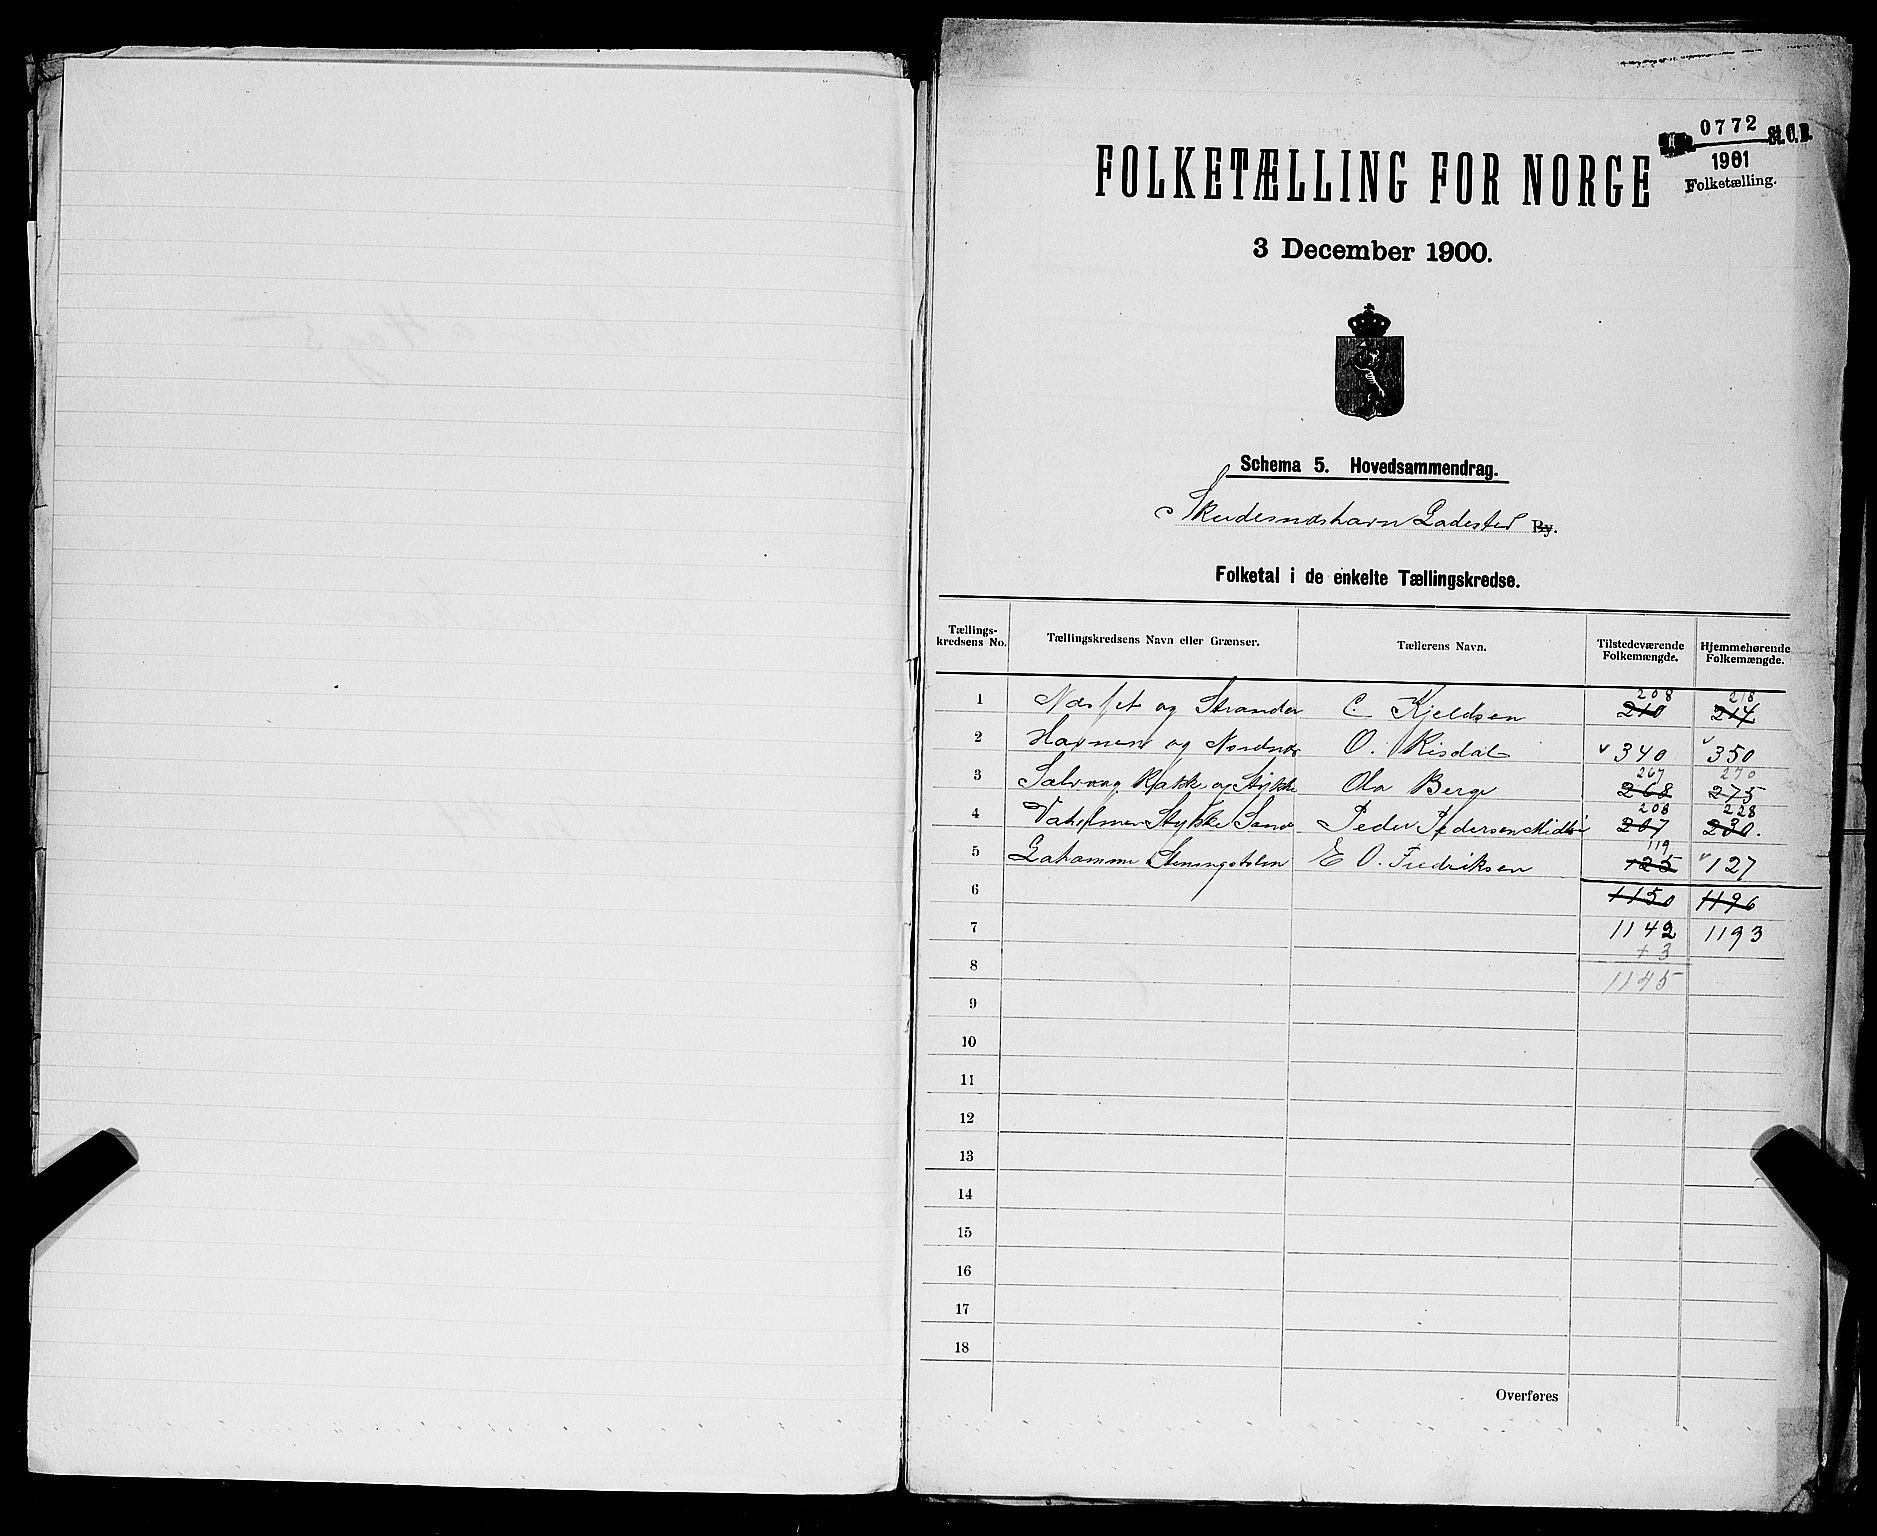 0772
St.C.B.
1901
Folketælling.
FOLKETÆLLING FOR NORGE
3 December 1900.
Schema 5. Hovedsammendrag.
Skudesneshavn Ladested By.
Folketal i de enkelte Tællingskredse.
Tællings-kredsens No. Tællingskredsens Navn eller Grænser. Tællerens Navn. Tilstedeværende Folkemængde. Hjemmehørende Folkemængde.
208 218
1 og Stranden C. Kjeldsen 210 214
2 Havnen og Nordnæs O. Risdal 340 350
267 270
3 og Stykke Ola Berge 268 275
208 228
4 Stykke Peder Pedersen 207 230.
119
5 E O. Fredriksen 125 127
6 1150 1196
7 1142 1193
+3
8 1145
9
10
11
12
13
14
15
16
17
18
Overføres